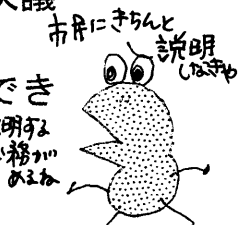 議
市民にきちんと
説明
しなきゃ
でき
明する
務が
あるね